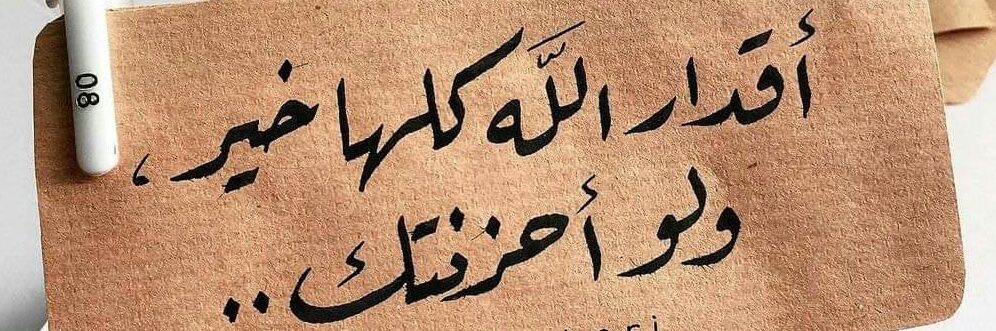 أقدار الله كلها خير،
ولو أحزنتك..
08